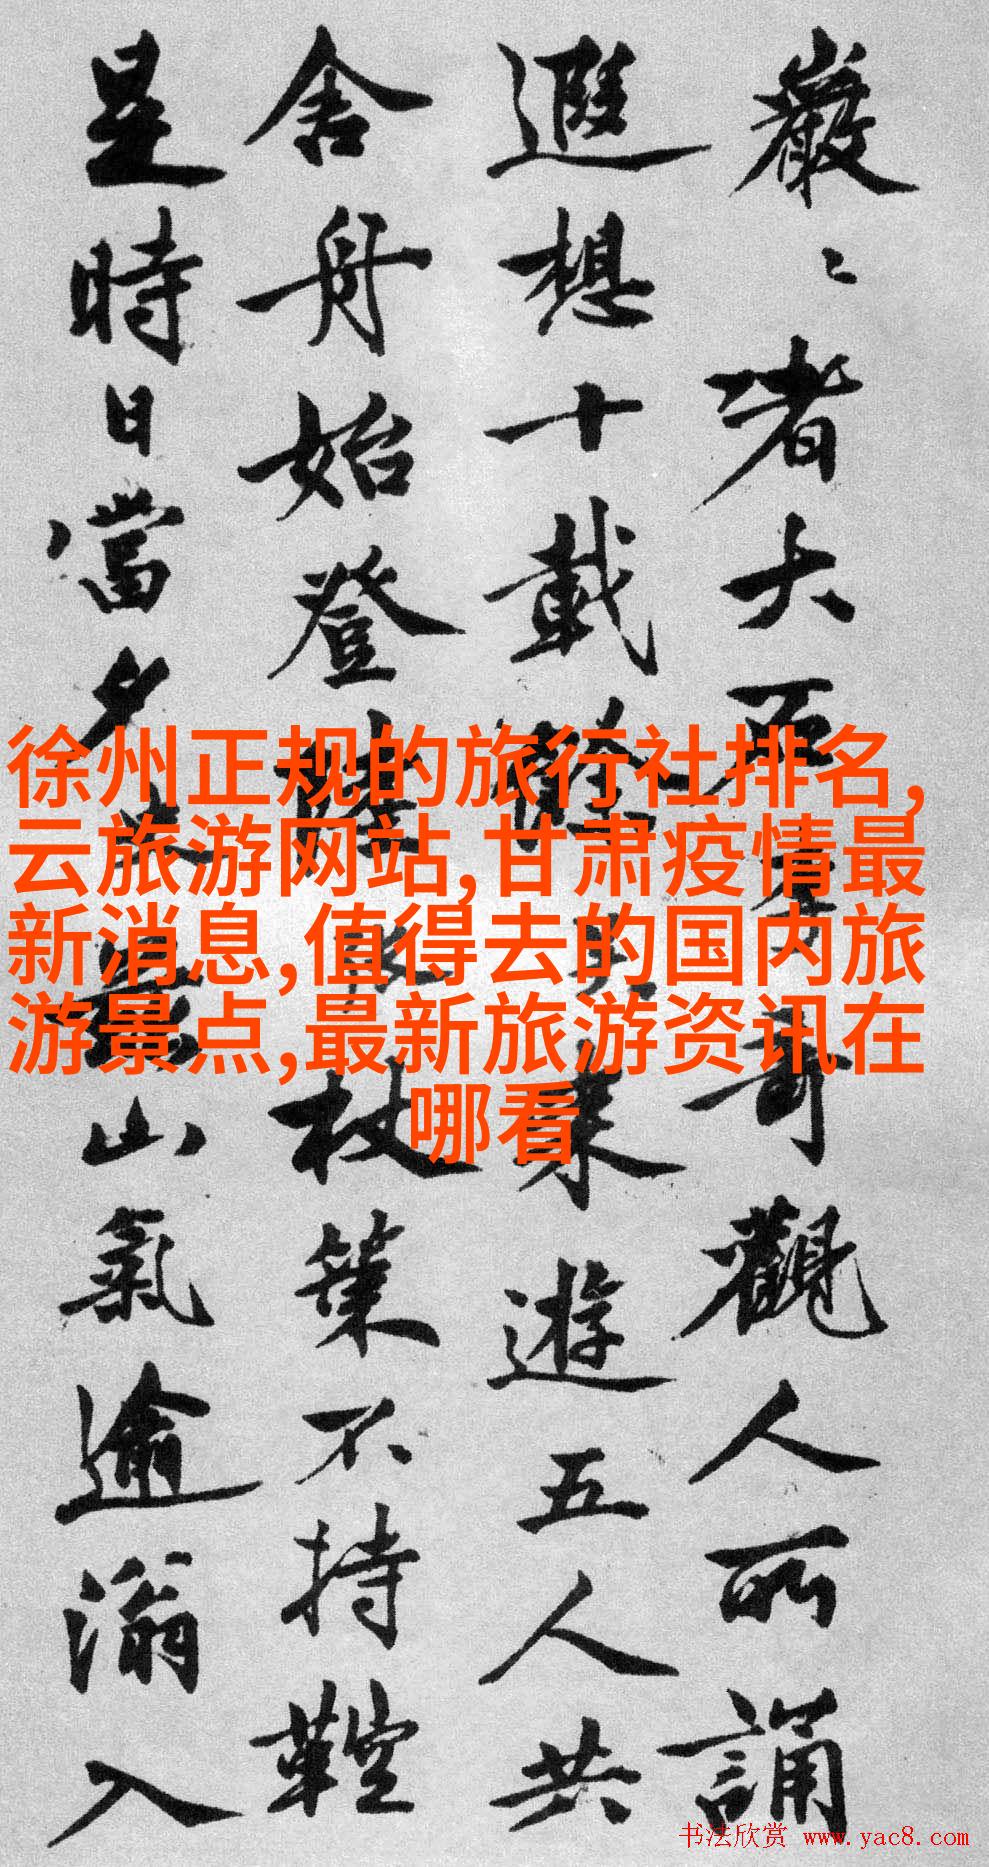 巖〻者大而奇觀人所誦
遐想十載來遊五人共
舍舟始登陸杖策不持鞚
是時日當夕山氣逾滃入
徐州正规的旅行社排名,
云旅游网站,甘肃疫情最
新消息,值得去的国内旅
游景点,最新旅游资讯在
哪看
书法欣赏 www.yac8.com